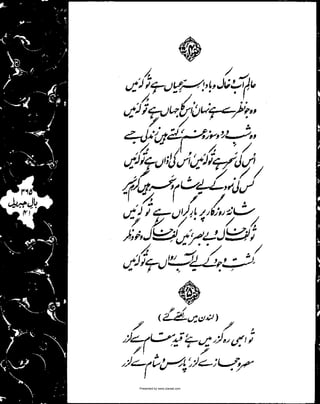 ۴
عالمِ آب و خاک و باد! سرِّ عیاں ہے تُو کہ میں
وہ جو نظر سے ہے نہاں، اُس کا جہاں ہے تُو کہ میں
وہ شبِ درد و سوز و غم، کہتے ہیں زندگی جسے
اُس کی سحر ہے تُو کہ میں، اُس کی اذاں ہے تُو کہ میں
کس کی نمود کے لیے شام و سحر ہیں گرمِ سیر
شانۂ روزگار پر بارِ گراں ہے تُو کہ میں
تُو کفِ خاک و بے بصر، میں کفِ خاک و خود نگر
کشتِ وجود کے لیے آبِ رواں ہے تُو کہ میں
۵
(لندن میں لکھے گئے)
تُو ابھی رہ گزر میں ہے، قیدِ مقام سے گزر
مصر و حجاز سے گزر، پارس و شام سے گزر
بالِ جبریل
۴۱
Presented by www.ziaraat.com